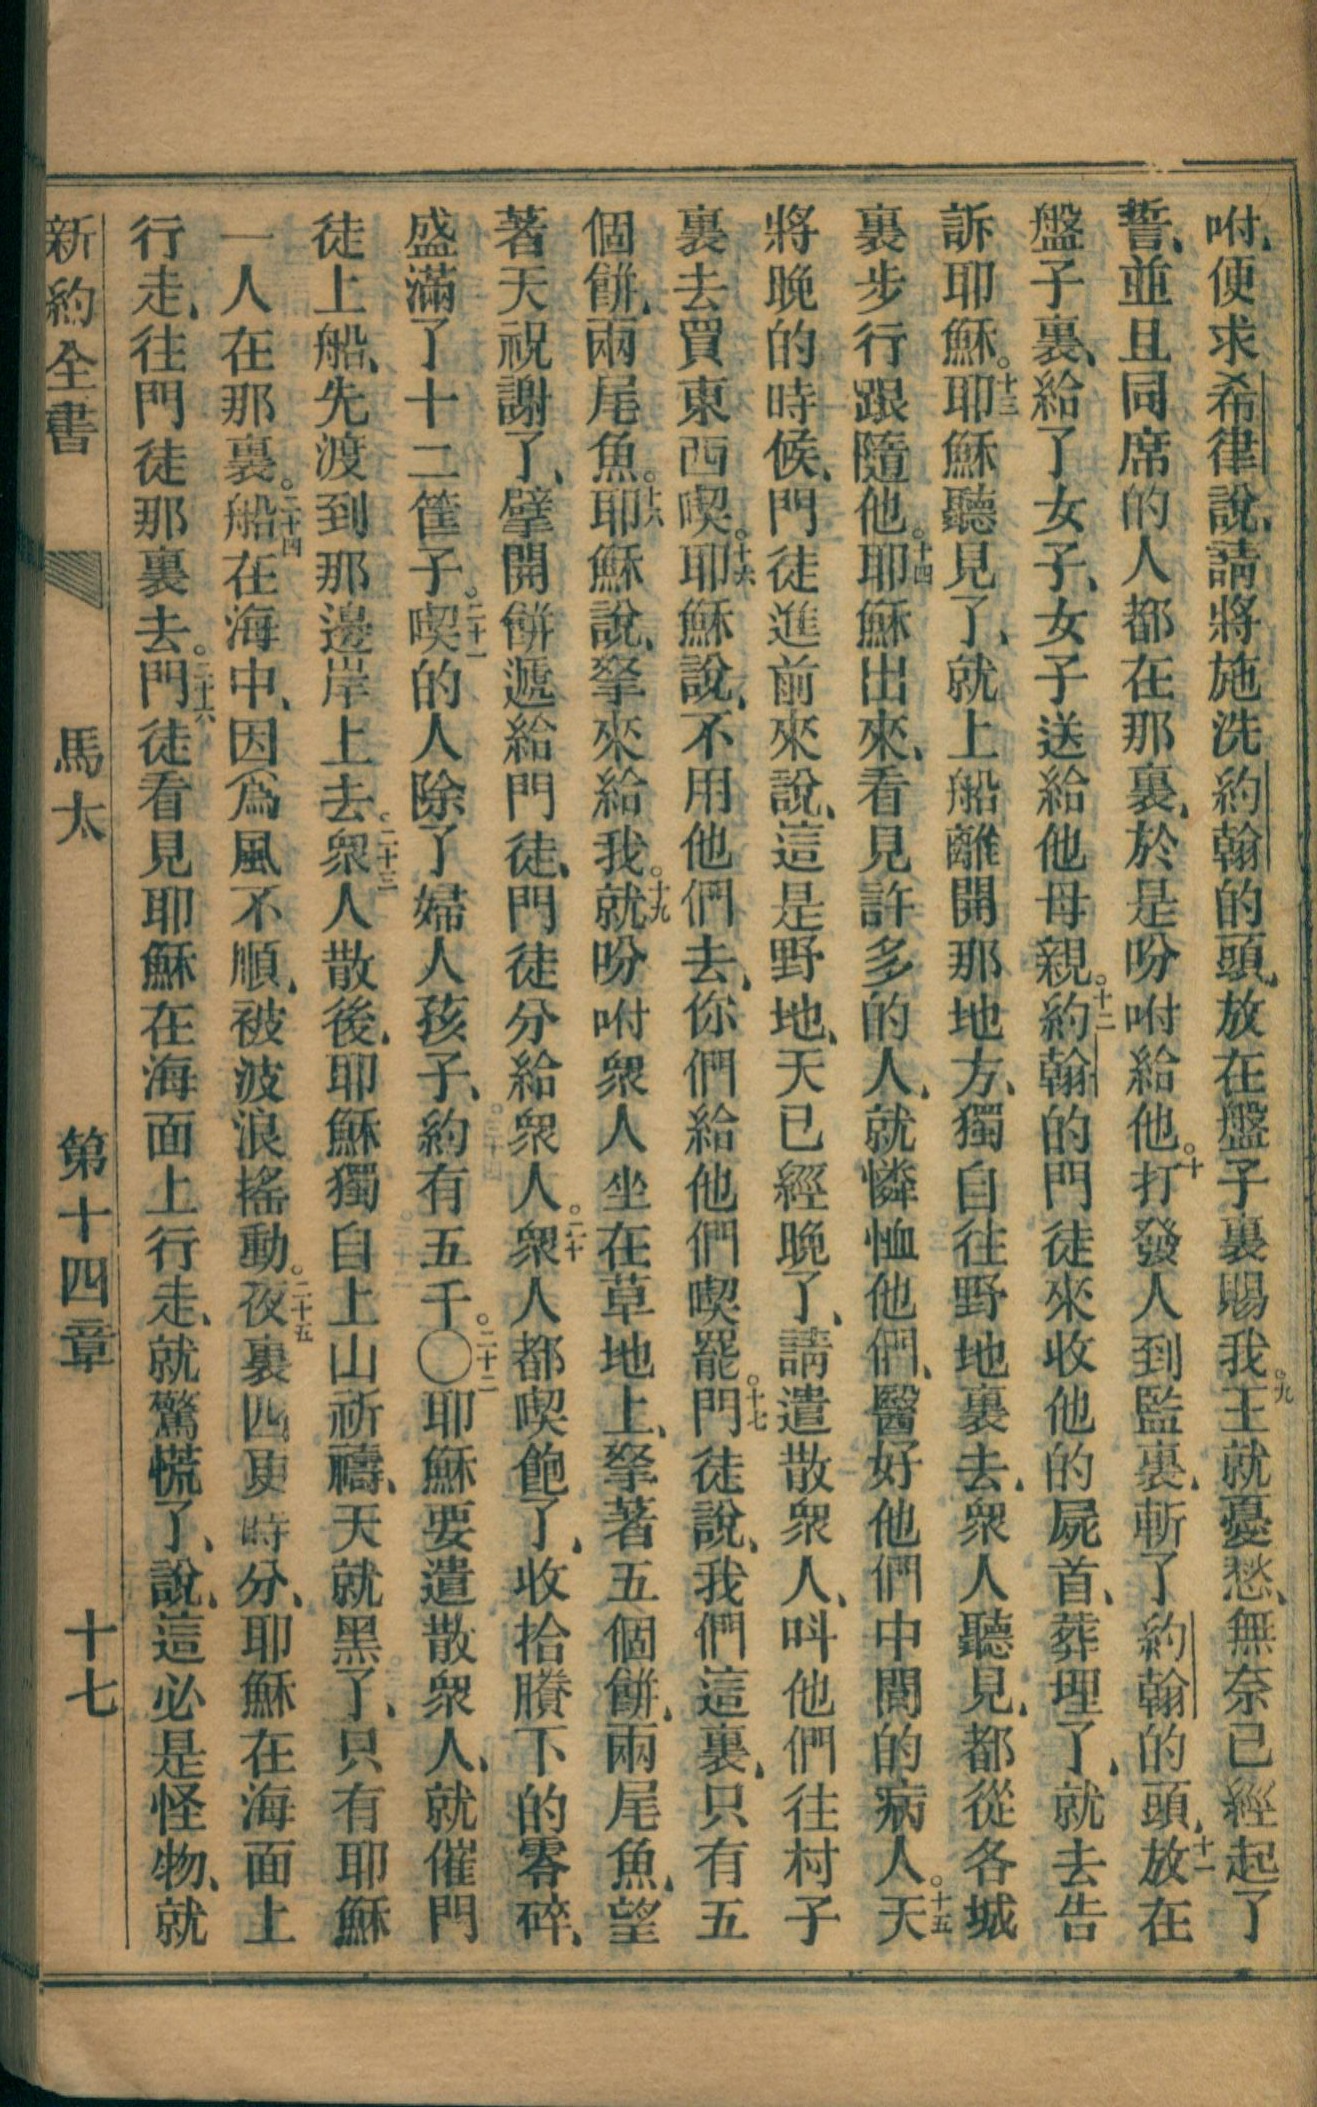 咐、便求希律說、請將施洗約翰的頭、放在盤子裏賜我。九王就憂愁、無奈已經起了
誓、並且同席的人都在那裏、於是吩咐給他。十打發人到監裏、斬了約翰的頭、十一放在
盤子裏、給了女子、女子送給他母親。十二約翰的門徒來收他的屍首、葬埋了、就去告
訴耶穌。十三耶穌聽見了、就上船離開那地方、獨自往野地裏去、衆人聽見、都從各城
裏步行跟隨他。十四耶穌出來、看見許多的人、就憐恤他們、醫好他們中間的病人。十五天
將晚的時候、門徒進前來說、這是野地、天已經晚了、請遣散衆人、呌他們往村子
裏去買東西喫。十六耶穌說、不用他們去、你們給他們喫罷。十七門徒說、我們這裏、只有五
個餅、兩尾魚。十八耶穌說、拏來給我。十九就吩咐衆人坐在草地上、拏著五個餅、兩尾魚、望
著天祝謝了、擘開餅遞給門徒、門徒分給衆人。二十衆人都喫飽了、收拾賸下的零碎、
盛滿了十二筐子。二十一喫的人除了婦人孩子、約有五千。二十二〇耶穌要遣散衆人、就催門
徒上船、先渡到那邊岸上去。二十三衆人散後、耶穌獨自上山祈禱、天就黑了、只有耶穌
一人在那裏。二十四船在海中、因爲風不順、被波浪搖動。二十五夜裏四更時分、耶穌在海面上
行走、往門徒那裏去。二十六門徒看見耶穌在海面上行走、就驚慌了、說、這必是怪物、就
新約全書 馬太 第十四章 十七